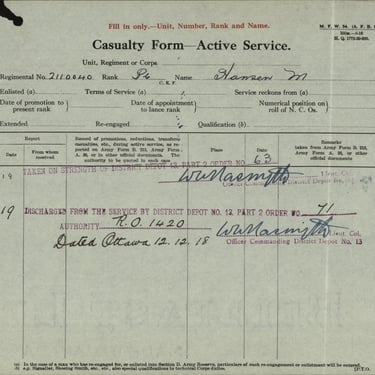 M. F. W. 54. (A. F. B.
H. Q. 1772-39-920.
Fill in only.—Unit, Number, Rank and Name.
Casualty Form—Active Service.
Unit, Regiment or Corps
Regimental No. 2110640 Rank Pte Name Hansen M.
C. E. F.
Enlisted (a) Terms of Service (a) Service reckons from (a)
Date of promotion to present rank Date of appointment to lance rank Numerical position on roll of N. C. Os.
Extended Re-engaged Qualification (b)
Report Record of promotions, reductions, transfers, casualties, etc., during active service, as reported on Army Form B. 213, Army Form A. 36, or in other official documents. The authority to be quoted in each case Remarks taken from Army Form B. 213, Army Form A. 36, or other official documents
Date From whom received Place Date
19 TAKEN ON STRENGTH OF DISTRICT DEPOT 13, PART 2 ORDER NO 63
Lieut. Col.
Officer Commanding District Depot No.
19 DISCHARGED FROM THE SERVICE BY DISTRICT DEPOT NO. 13 PART 2 ORDER NO. 71
AUTHORITY R.O. 1420 Lieut. Col.
Dated Ottawa 12.12.18 Officer Commanding District Depot No. 13
(a) In the case of a man who has re-engaged for, or enlisted into Section D. Army Reserve, particulars of such re-engagement or enlistment will be entered.
(b) e.g. Signaller, Shoeing Smith, etc., etc., also special qualifications in technical Corps duties. [P.T.O.